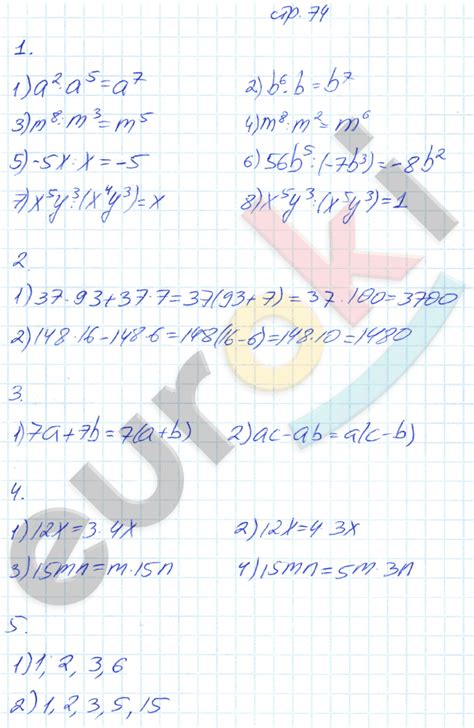 стр. 74
1.
1) a²·a⁵=a⁷ 2) b⁶·b=b⁷
3) m⁸:m³=m⁵ 4) m⁸:m²=m⁶
5) -5x:x=-5 6) 56b⁵:(-7b³)=-8b²
7) x⁵y³:(x⁴y³)=x 8) x⁵y³:(x⁵y³)=1
2.
1) 37·93+37·7=37(93+7)=37·100=3700
2) 148·16-148·6=148(16-6)=148·10=1480
3.
1) 7a+7b=7(a+b) 2) ac-ab=a(c-b)
4.
1) 12x=3·4x 2) 12x=4·3x
3) 15mn=m·15n 4) 15mn=5m·3n
5.
1) 1, 2, 3, 6
2) 1, 2, 3, 5, 15
euroki